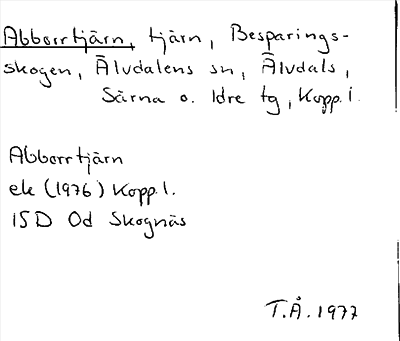 Abborrtjärn, tjärn, Besparings-
skogen, Älvdalens sn, Älvdals,
Särna o. Idre tg, Kopp. l.
Abborrtjärn
ek (1976) Kopp. l.
15D 0d Skognäs
T.Å. 1977